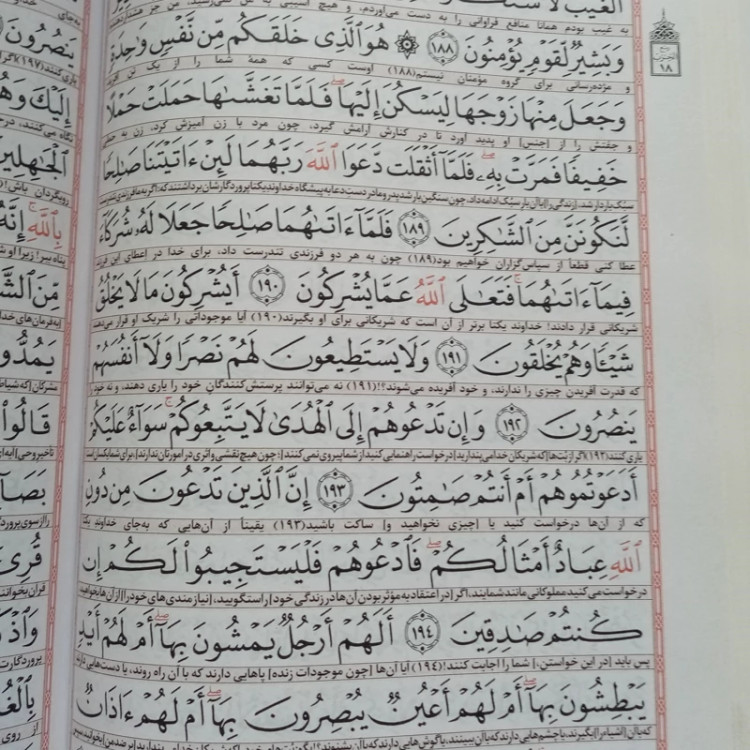 الغیب لا
به غیب بودم همانا منافع فراوانی را به دست می‌آوردم، و هیچ آسیبی به من نمی‌رسید، من جز
وَبَشِيرٌ لِّقَوْمٍ يُؤْمِنُونَ ١٨٨ هُوَ الَّذِي خَلَقَكُم مِّن نَّفْسٍ وَاحِدَةٍ
و مژده‌رسانی برای گروه مؤمنان نیستم(۱۸۸) اوست کسی که همهٔ شما را از یک تن
وَجَعَلَ مِنْهَا زَوْجَهَا لِيَسْكُنَ إِلَيْهَا فَلَمَّا تَغَشَّىٰهَا حَمَلَتْ حَمْلًا
و جفتش را از [جنس] او پدید آورد تا در کنارش آرامش گیرد، چون مرد با زن آمیزش کرد، زن به
خَفِيفًا فَمَرَّتْ بِهِۦ فَلَمَّا أَثْقَلَت دَّعَوَا اللَّهَ رَبَّهُمَا لَئِنْ ءَاتَيْتَنَا صَٰلِحًا
سبک باردار شد، [زندگی را] با آن بار سبک ادامه داد، چون سنگین بار شد پدر و مادر دست دعا به پیشگاه خداوند یکتا پروردگارشان برداشتند که اگر به ما فرزندی تندرست
لَّنَكُونَنَّ مِنَ الشَّٰكِرِينَ ١٨٩ فَلَمَّا ءَاتَىٰهُمَا صَٰلِحًا جَعَلَا لَهُۥ شُرَكَاءَ
عطا کنی قطعاً از سپاس‌گزاران خواهیم بود(۱۸۹) چون به هر دو فرزندی تندرست داد، برای خدا در اعطای این
فِيمَا ءَاتَىٰهُمَا فَتَعَٰلَى اللَّهُ عَمَّا يُشْرِكُونَ ١٩٠ أَيُشْرِكُونَ مَا لَا يَخْلُقُ
شریکانی قرار دادند! خداوند یکتا برتر از آن است که شریکانی برای او بگیرند(۱۹۰) آیا موجوداتی را شریک او قرار می‌دهند
شَيْـًٔا وَهُمْ يُخْلَقُونَ ١٩١ وَلَا يَسْتَطِيعُونَ لَهُمْ نَصْرًا وَلَا أَنفُسَهُمْ
که قدرت آفریدن چیزی را ندارند، و خود آفریده می‌شوند؟!(۱۹۱) نه می‌توانند پرستش‌کنندگان خود را یاری دهند، و نه خود
يَنصُرُونَ ١٩٢ وَإِن تَدْعُوهُمْ إِلَى الْهُدَىٰ لَا يَتَّبِعُوكُمْ سَوَاءٌ عَلَيْكُمْ
یاری کنند(۱۹۲) اگر از بت‌ها [که شریکان خدا می‌پندارید] درخواست راهنمایی کنید از شما پیروی نمی‌کنند [؛ چون هیچ نقشی و اثری در امورتان ندارند]، برای شما یکسان است
أَدَعَوْتُمُوهُمْ أَمْ أَنتُمْ صَٰمِتُونَ ١٩٣ إِنَّ الَّذِينَ تَدْعُونَ مِن دُونِ
که از آن‌ها درخواست کنید یا [چیزی نخواهید و] ساکت باشید(۱۹۳) یقیناً از آن‌هایی که به‌جای خداوند یکتا
اللَّهِ عِبَادٌ أَمْثَالُكُمْ فَادْعُوهُمْ فَلْيَسْتَجِيبُوا لَكُمْ إِن
درخواست می‌کنید مملوکانی مانند شمایند، اگر [در اعتقاد به مؤثر بودن آن‌ها در زندگی خود] راستگویید، [نیازمندی‌های خود را] از آن‌ها بخواهید
كُنتُمْ صَٰدِقِينَ ١٩٤ أَلَهُمْ أَرْجُلٌ يَمْشُونَ بِهَا أَمْ لَهُمْ أَيْدٍ
پس باید [در این خواستن،] شما را اجابت کنند!(۱۹۴) آیا آن‌ها [چون موجودات زنده] پاهایی دارند که با آن راه روند، یا دست‌هایی دارند
يَبْطِشُونَ بِهَا أَمْ لَهُمْ أَعْيُنٌ يُبْصِرُونَ بِهَا أَمْ لَهُمْ ءَاذَانٌ
که با آن [اشیا را] بگیرند، یا چشم‌هایی دارند که با آن ببینند، یا گوش‌هایی دارند که با آن بشنوند؟!
٩٨
يَنصُرُونَ
إِلَيْكَ
الْجَٰهِلِينَ
بِاللَّهِ إِنَّهُ
يَمُدُّونَ
قَالُوا